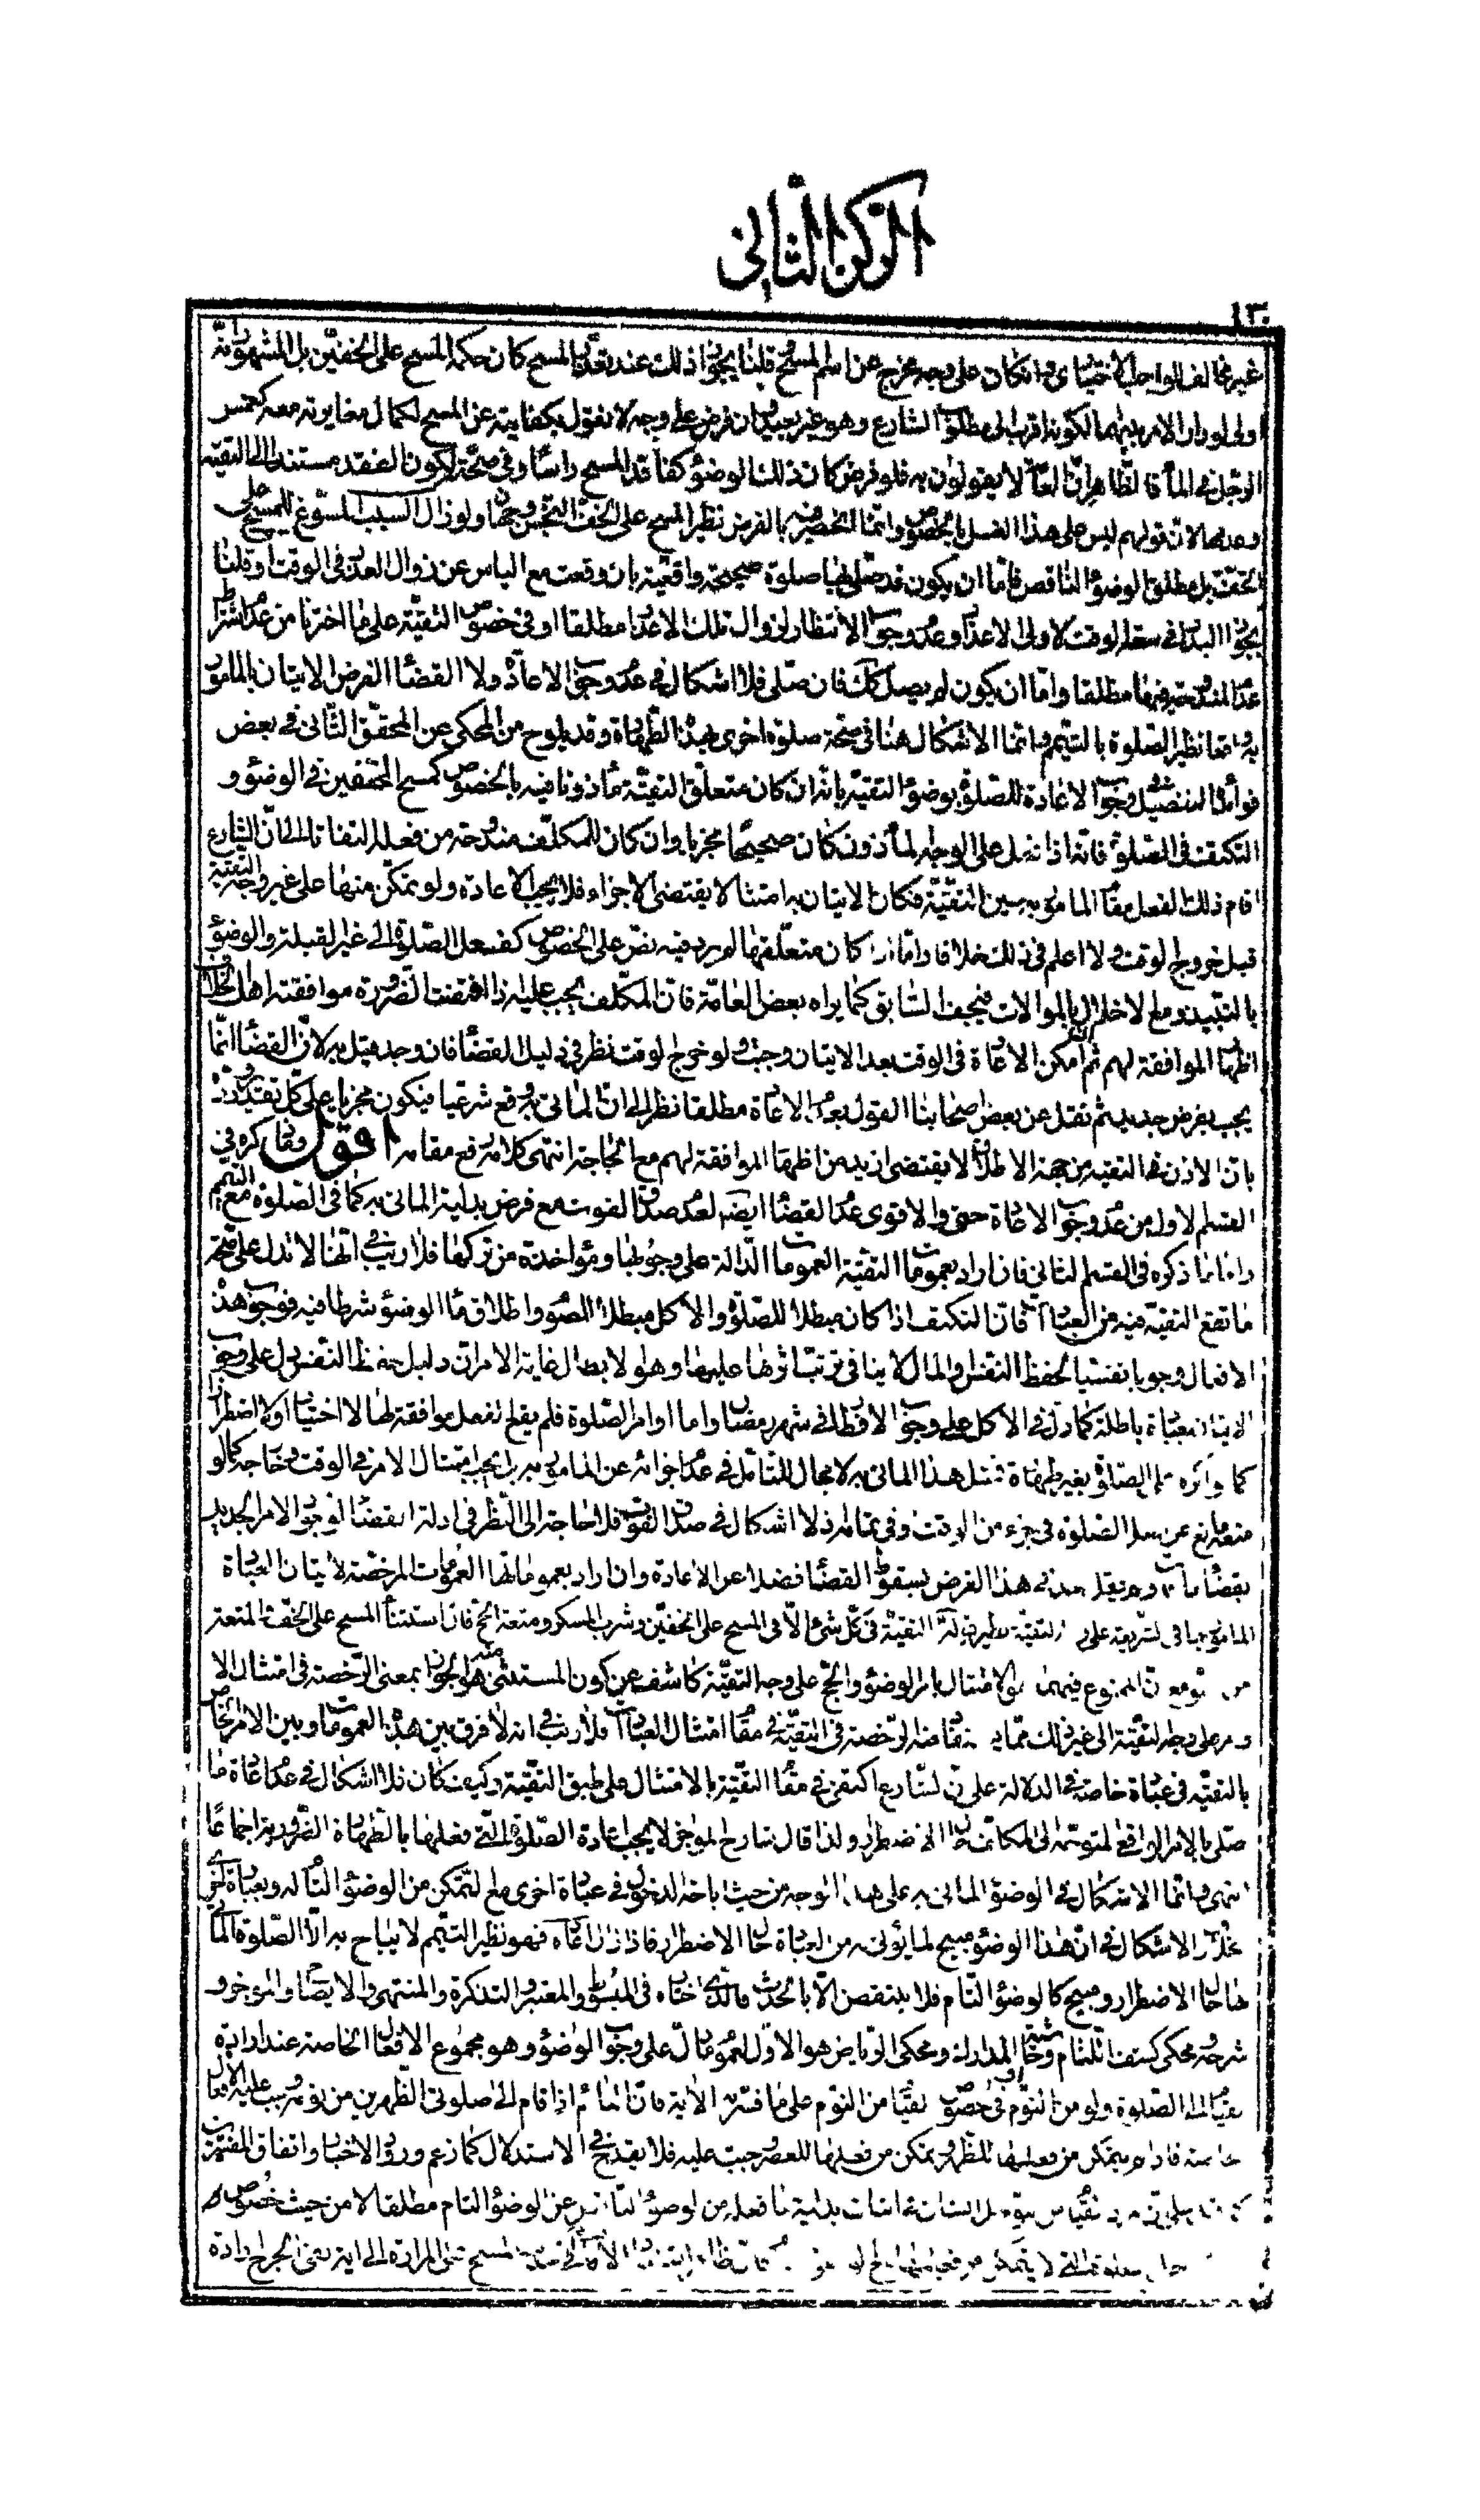 الركن الثاني
١٣٠
غير مخالف للواجب الاختياري وان كان على وجه يخرج عن اسم المسح قلنا يجوز ذلك عند تعذر المسح كان حكمه المسح على الخفين بل المشهور انه
اولى لو دار الامر بينهما لكونه اقرب الى مطلوب الشارع وهو غير بعيد ان فرض على وجه لا نقول بكفايته عن المسح لكمال مغايرته معه كغمس
الرجل في الماء فالظاهر ان العامة لا يقولون به فلو فرض كان ذلك الوضوء كفاقد المسح راسا وفي صحته لكون الفقد مستندا الى التقية
وعدمها لان قولهم ليس على هذا الغسل بالخصوص وانما انحصر فيه بالفرض نظير المسح على الخف النجس وجهان ولو زال السبب المسوغ للمسح على
الخف بل مطلق الوضوء الناقص فاما ان يكون قد صلى بها صلوة صحيحة واقعية بان وقعت مع الياس عن زوال العذر في الوقت او قلنا
بجواز البدار في سعة الوقت لاولى الاعذار وعدم وجوب الانتظار لزوال تلك الاعذار مطلقا او في خصوص التقية على ما اخترنا من عدم اشتراط
عدم المندوحة فيها مطلقا واما ان يكون لم يصل كك فان صلى فلا اشكال في عدم وجوب الاعادة ولا القضاء لفرض الاتيان بالمامور
به واقعا نظير الصلوة بالتيمم وانما الاشكال هنا في صحة صلوة اخرى بهذه الطهارة وقد يلوح من المحكي عن المحقق الثاني في بعض
فوائده التفصيل في وجوب الاعادة للصلوة بوضوء التقية بانه ان كان متعلق التقية مأذونا فيه بالخصوص كمسح الخفين في الوضوء و
التكتف في الصلوة فانه اذا فعل على الوجه المأذون كان صحيحا مجزيا وان كان للمكلف مندوحة من فعله التفاتا الى ان الشارع
اقام ذلك الفعل مقام المامور به حين التقية فكان الاتيان به امتثالا يقتضي الاجزاء فلا يجب الاعادة ولو تمكن منها على غير وجه التقية
قبل خروج الوقت ولا اعلم في ذلك خلافا واما اذا كان متعلقها لم يرد فيه نص على الخصوص كفعل الصلوة الى غير القبلة والوضوء
بالنبيذ ومع الاخلال بالموالات فيجف السابق كما يراه بعض العامة فان المكلف يجب عليه اذا اقتضت الضرورة موافقة اهل الخلاف
اظهار الموافقة لهم ثم ان امكن الاعادة في الوقت بعد الاتيان وجب ولو خرج الوقت نظر في دليل القضاء فان وجد قيل به لان القضاء انما
يجب بفرض جديد ثم نقل عن بعض اصحابنا القول بعدم الاعادة مطلقا نظرا الى ان الماتي به وقع شرعيا فيكون مجزيا على كل تقدير ورده
بان الاذن في التقية من جهة الاطلاق لا يقتضي ازيد من اظهار الموافقة لهم مع الحاجة انتهى كلامه رفع مقامه اقول وما ذكره في
القسم الاول من عدم وجوب الاعادة حق والاقوى عدم القضاء ايضا لعدم صدق الفوت مع فرض بدلية الماتي به كما في الصلوة مع التيمم
واما ما ذكره في القسم الثاني فان اراد بعمومات التقية العمومات الدالة على وجوبها ومؤاخذة من تركها فلا ريب في انها لا تدل على صحة
ما تقع التقية فيه من العبادات فان التكتف اذا كان مبطلا للصلوة والاكل مبطلا للصوم واطلاق ماء الوضوء شرطا فيه فوجوب هذه
الافعال وجوبا نفسيا لحفظ النفس والمال لا ينافي ترتب اثرها عليها وهو الابطال غاية الامر ان دليل حفظ النفس يدل على وجوب
الاتيان بعبادة باطلة كما دل في الاكل على وجوب الافطار في شهر رمضان واما اوامر الصلوة فلم يقع الفعل موافقة لها لا اختيارا ولا اضطرارا
كما لو اكره على الصلوة بغير طهارة فمثل هذا الماتي به لا مجال للتأمل في عدم اجزائه عن المامور به بل يجب امتثال الامر في الوقت وخارجه كما لو
منعه مانع عن فعل الصلوة في جزء من الوقت وفي تمامه اذ لا اشكال في صدق الفوت فلا حاجة الى النظر في ادلة القضاء لوجود الامر الجديد
بقضاء ما فات ولم يقل احد في هذا الفرض بسقوط القضاء فضلا عن الاعادة وان اراد بعموماتها العمومات المرخصة لاتيان العبادة
المامور بها في الشريعة على وجه التقية نظير قوله التقية في كل شئ الا في المسح على الخفين وشرب المسكر ومتعة الحج فان استثناء المسح على الخف والمتعة
مع ان الممنوع فيهما هو الامتثال بامر الوضوء والحج على وجه التقية كاشف عن كون المستثنى منه هو الجواز بمعنى الرخصة في امتثال الا
وامر على وجه التقية الى غير ذلك مما يستفاد منه الرخصة في التقية في مقام امتثال العبادات فلا ريب في انه لا فرق بين هذه العمومات وبين الامر الخاص
بالتقية في عبادة خاصة في الدلالة على ان الشارع اكتفى في مقام التقية بالامتثال على طبق التقية وكيف كان فلا اشكال في عدم اعادة ما
صلى بالامر الواقعي المتوجه الى المكلف حال الاضطرار ولذا قال شارح الموجز لا يجب اعادة الصلوة التي فعلها بالطهارة الضرورية اجماعا
انتهى وانما الاشكال في الوضوء الماتي به على هذا الوجه من حيث اباحة الدخول في عبادة اخرى مع التمكن من الوضوء التام له وبعبارة اخرى
الاشكال في ان هذا الوضوء مبيح لما يؤتى به من العبادة حال الاضطرار فاذا زال اعاده فهو نظير التيمم لا يباح به الا الصلوة الماتي
بها حال الاضطرار ومبيح كالوضوء التام فلا ينتقض الا بالحدث فالذي اختاره في المبسوط والمعتبر والتذكرة والمنتهى والايضاح والموجز و
شرحه ومحكي كشف اللثام وحاشية المدارك ومحكي الرياض هو الاول لعموم ما دل على وجوب الوضوء وهو مجموع الافعال الخاصة عند ارادة
القيام الى الصلوة ولو من النوم في خصوص القيام من النوم على ما فسر به الاية فان النائم اذا قام الى صلوتي الظهرين من نومه وجب عليه الافعال
الخاصة فاذا لم يتمكن من فعلها للظهر وتمكن من فعلها للعصر وجبت عليه فلا يقدح في الاستدلال كما زعم ورود الاخبار واتفاق المفسرين